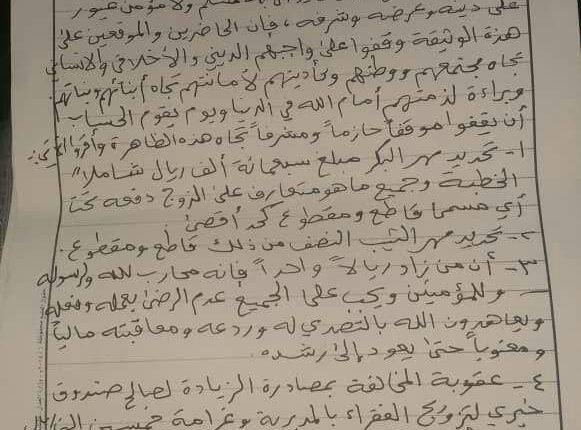 على دينه وعرضه وشرفه، فإن الحاضرين والموقعين على
هذة الوثيقة وقفوا على واجبهم الديني والأخلاقي والانساني
تجاه مجتمعهم ووطنهم وتأديتهم لأمانتهم تجاه أبنائهم وبناتهم
وبراءة لذمتهم أمام الله في الدنيا ويوم يقوم الحساب
أن يقفوا موقفاً حازماً ومشرفاً تجاه هذه الظاهرة وأقروا الآتي:
١- تحديد مهر البكر مبلغ سبعمائة ألف ريال شاملا"
الخطبة وجميع ما هو متعارف على الزوج دفعه تحت
أي مسما قاطع ومقطوع كحد أقصى
٢- تحديد مهر الثيب النصف من ذلك قاطع ومقطوع.
٣- أن من زاد ريالاً واحداً فإنه محارب لله ولرسوله
وللمؤمنين ويجب على الجميع عدم الرضى بعمله وفعله
ويعاهدون الله بالتصدي له وردعه ومعاقبته مالياً
ومعنوياً حتى يعود إلى رشده.
٤- عقوبة المخالفة بمصادرة الزيادة لصالح صندوق
خيري لتزويج الفقراء بالمديرية وغرامة خمسين